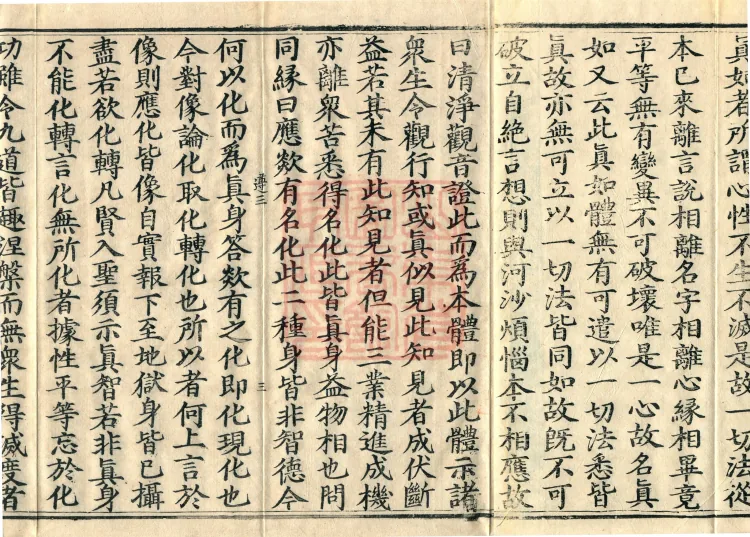 真如者所謂心性不生不滅是故一切法從
本已來離言說相離名字相離心緣相畢竟
平等無有變異不可破壞唯是一心故名眞
如又云此眞如體無有可遣以一切法悉皆
眞故亦無可立以一切法皆同如故旣不可
破立自絶言想則與河沙煩惱本不相應故
曰清淨觀音證此而爲本體即以此體示諸
衆生令觀行知或眞似見此知見者成伏斷
益若其未有此知見者但能三業精進成機
亦離衆苦悉得名化此皆眞身益物相也問
同緣曰應欻有名化此二種身皆非智德今
何以化而爲眞身答欻有之化即化現化也
遵三
三
今對像論化取化轉化也所以者何上言於
像則應化皆像自實報下至地獄身皆已攝
盡若欲化轉凡賢入聖須示眞智若非眞身
不能化轉言化無所化者據性平等忘於化
功雖令九道皆趣涅槃而無衆生得滅度者